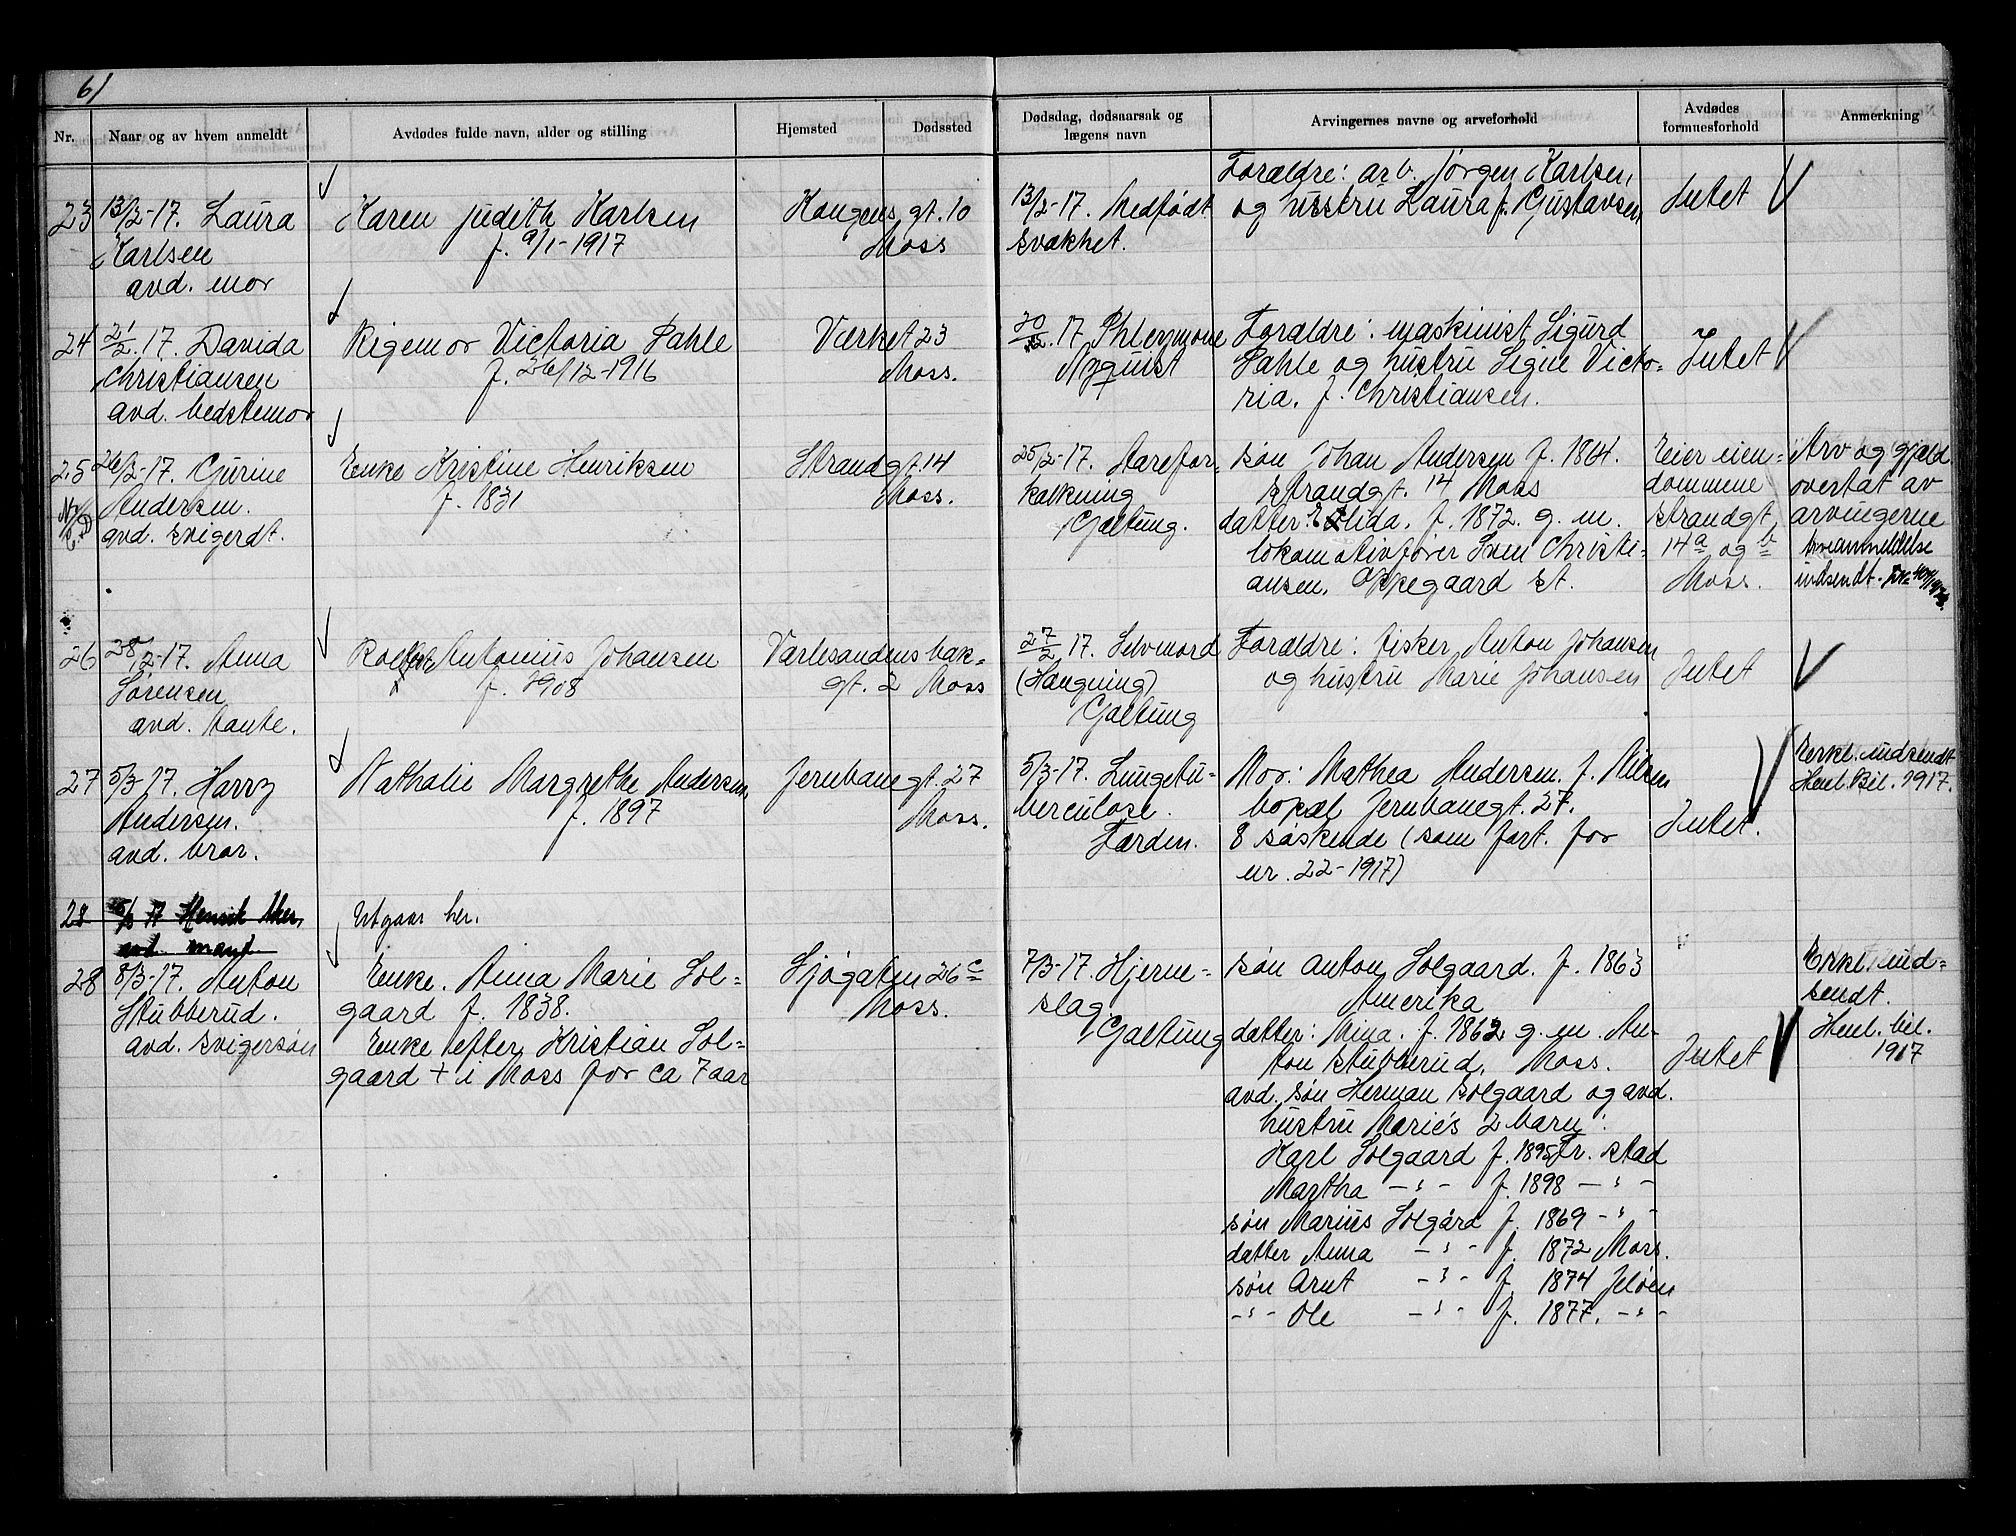 61
Nr.
Naar og av hvem anmeldt
Avdødes fulde navn, alder og stilling
Hjemsted
Dødssted
Dødsdag, dødsaarsak og lægens navn
Arvingernes navne og arveforhold
Avdødes formuesforhold
Anmerkning
23
13/2-17. Laura
Karlsen
avd. mor
Karen Judith Karlsen
f. 9/1-1917
Kongens gt. 10
Moss
13/2-17. Medfødt
svakhet.
Forældre: arb. Jørgen Karlsen,
og hustru Laura f. Gustavsen
Intet
24
21/2.17. Davida
Christiansen
avd. bedstemor
Rigemor Victoria Dahle
f. 26/12-1916
Værket 23
Moss.
20/2.17 Phlegmone
Nyquist
Forældre: maskinist Sigurd
Dahle og hustru Signe Victo-
ria. f. Christiansen.
Intet
25
26/2-17. Gurine
Andersen.
avd. svigerdt.
Enke Kristine Henriksen
f. 1831
Strandgt. 14
Moss.
25/2-17. Aarefor-
kalkning
Galtung.
søn Johan Andersen f. 1864.
Strandgt. 14 Moss
datter: Elida. f. 1872. g. m.
lokomotivfører Sven Christi-
ansen, Oppegaard st.
Eier eien-
dommene
Strandgt
14a og b
Moss.
Arv og gjæld
overtat av
arvingerne
Arveanmeldelse
indsendt.
26
28/2-17. Anna
Sørensen
avd. tante.
Antonius Johansen
f. 1908
Værlesandens bak-
gt. 2 Moss
27/2.17. Selvmord
(Hængning)
Galtung
Forældre: fisker Anton Johansen
og hustru Marie Johansen
Intet
27
5/3-17. Harry
Andersen.
avd. bror.
Nathalie Margrethe Andersen,
f. 1897
Jernbanegt. 27
Moss.
5/3-17. Lungetu-
berculose.
Færden.
Mor: Mathea Andersen. f. Nilsen
bopæl Jernbanegt. 27.
8 søskende (som fort. for
nr. 22-1917)
Intet.
Erkl. indsendt
Henl. Bil. 1917.
28
17 Henrik
avd. mand
Utgaar her.
28
8/3-17. Anton
Stubberud.
avd. svigersøn
Enke. Anna Marie Sol-
gaard f. 1838.
Enke efter Kristian Sol-
gaard + i Moss for ca 7 aar
Sjøgaten 26c
Moss.
7/3-17. Hjerne-
slag.
Galtung
søn Anton Solgaard. f. 1863
Amerika
datter: Mina. f. 1862 g. m. An-
ton Stubberud, Moss.
avd. søn Herman Solgaard og avd.
hustru Marie's 2 barn:
Karl Solgaard f. 1895 Fr. stad
Martha -"- f. 1898 -"-
søn Marius Solgård f. 1869 -"-
datter Anna -"- f. 1872 Moss.
søn Arnt -"- f. 1874 Jeløen
-"- Ole -"- f. 1877. -"-
Intet
Erkl. ind-
sendt.
Henl. bil.
1917